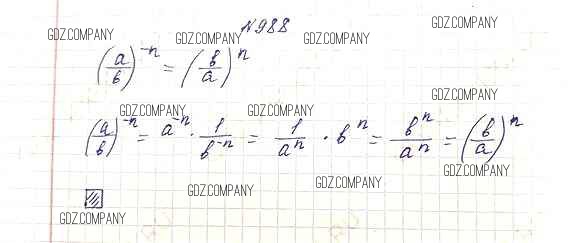 №988
GDZ.COMPANY GDZ.COMPANY GDZ.COMPANY GDZ.COMPANY
(a/в)^-n = (в/a)^n
GDZ.COMPANY
GDZ.COMPANY GDZ.COMPANY
(a/в)^-n = a^-n · 1/в^-n = 1/a^n · в^n = в^n/a^n = (в/a)^n
GDZ.COMPANY
GDZ.COMPANY GDZ.COMPANY
GDZ.COMPANY